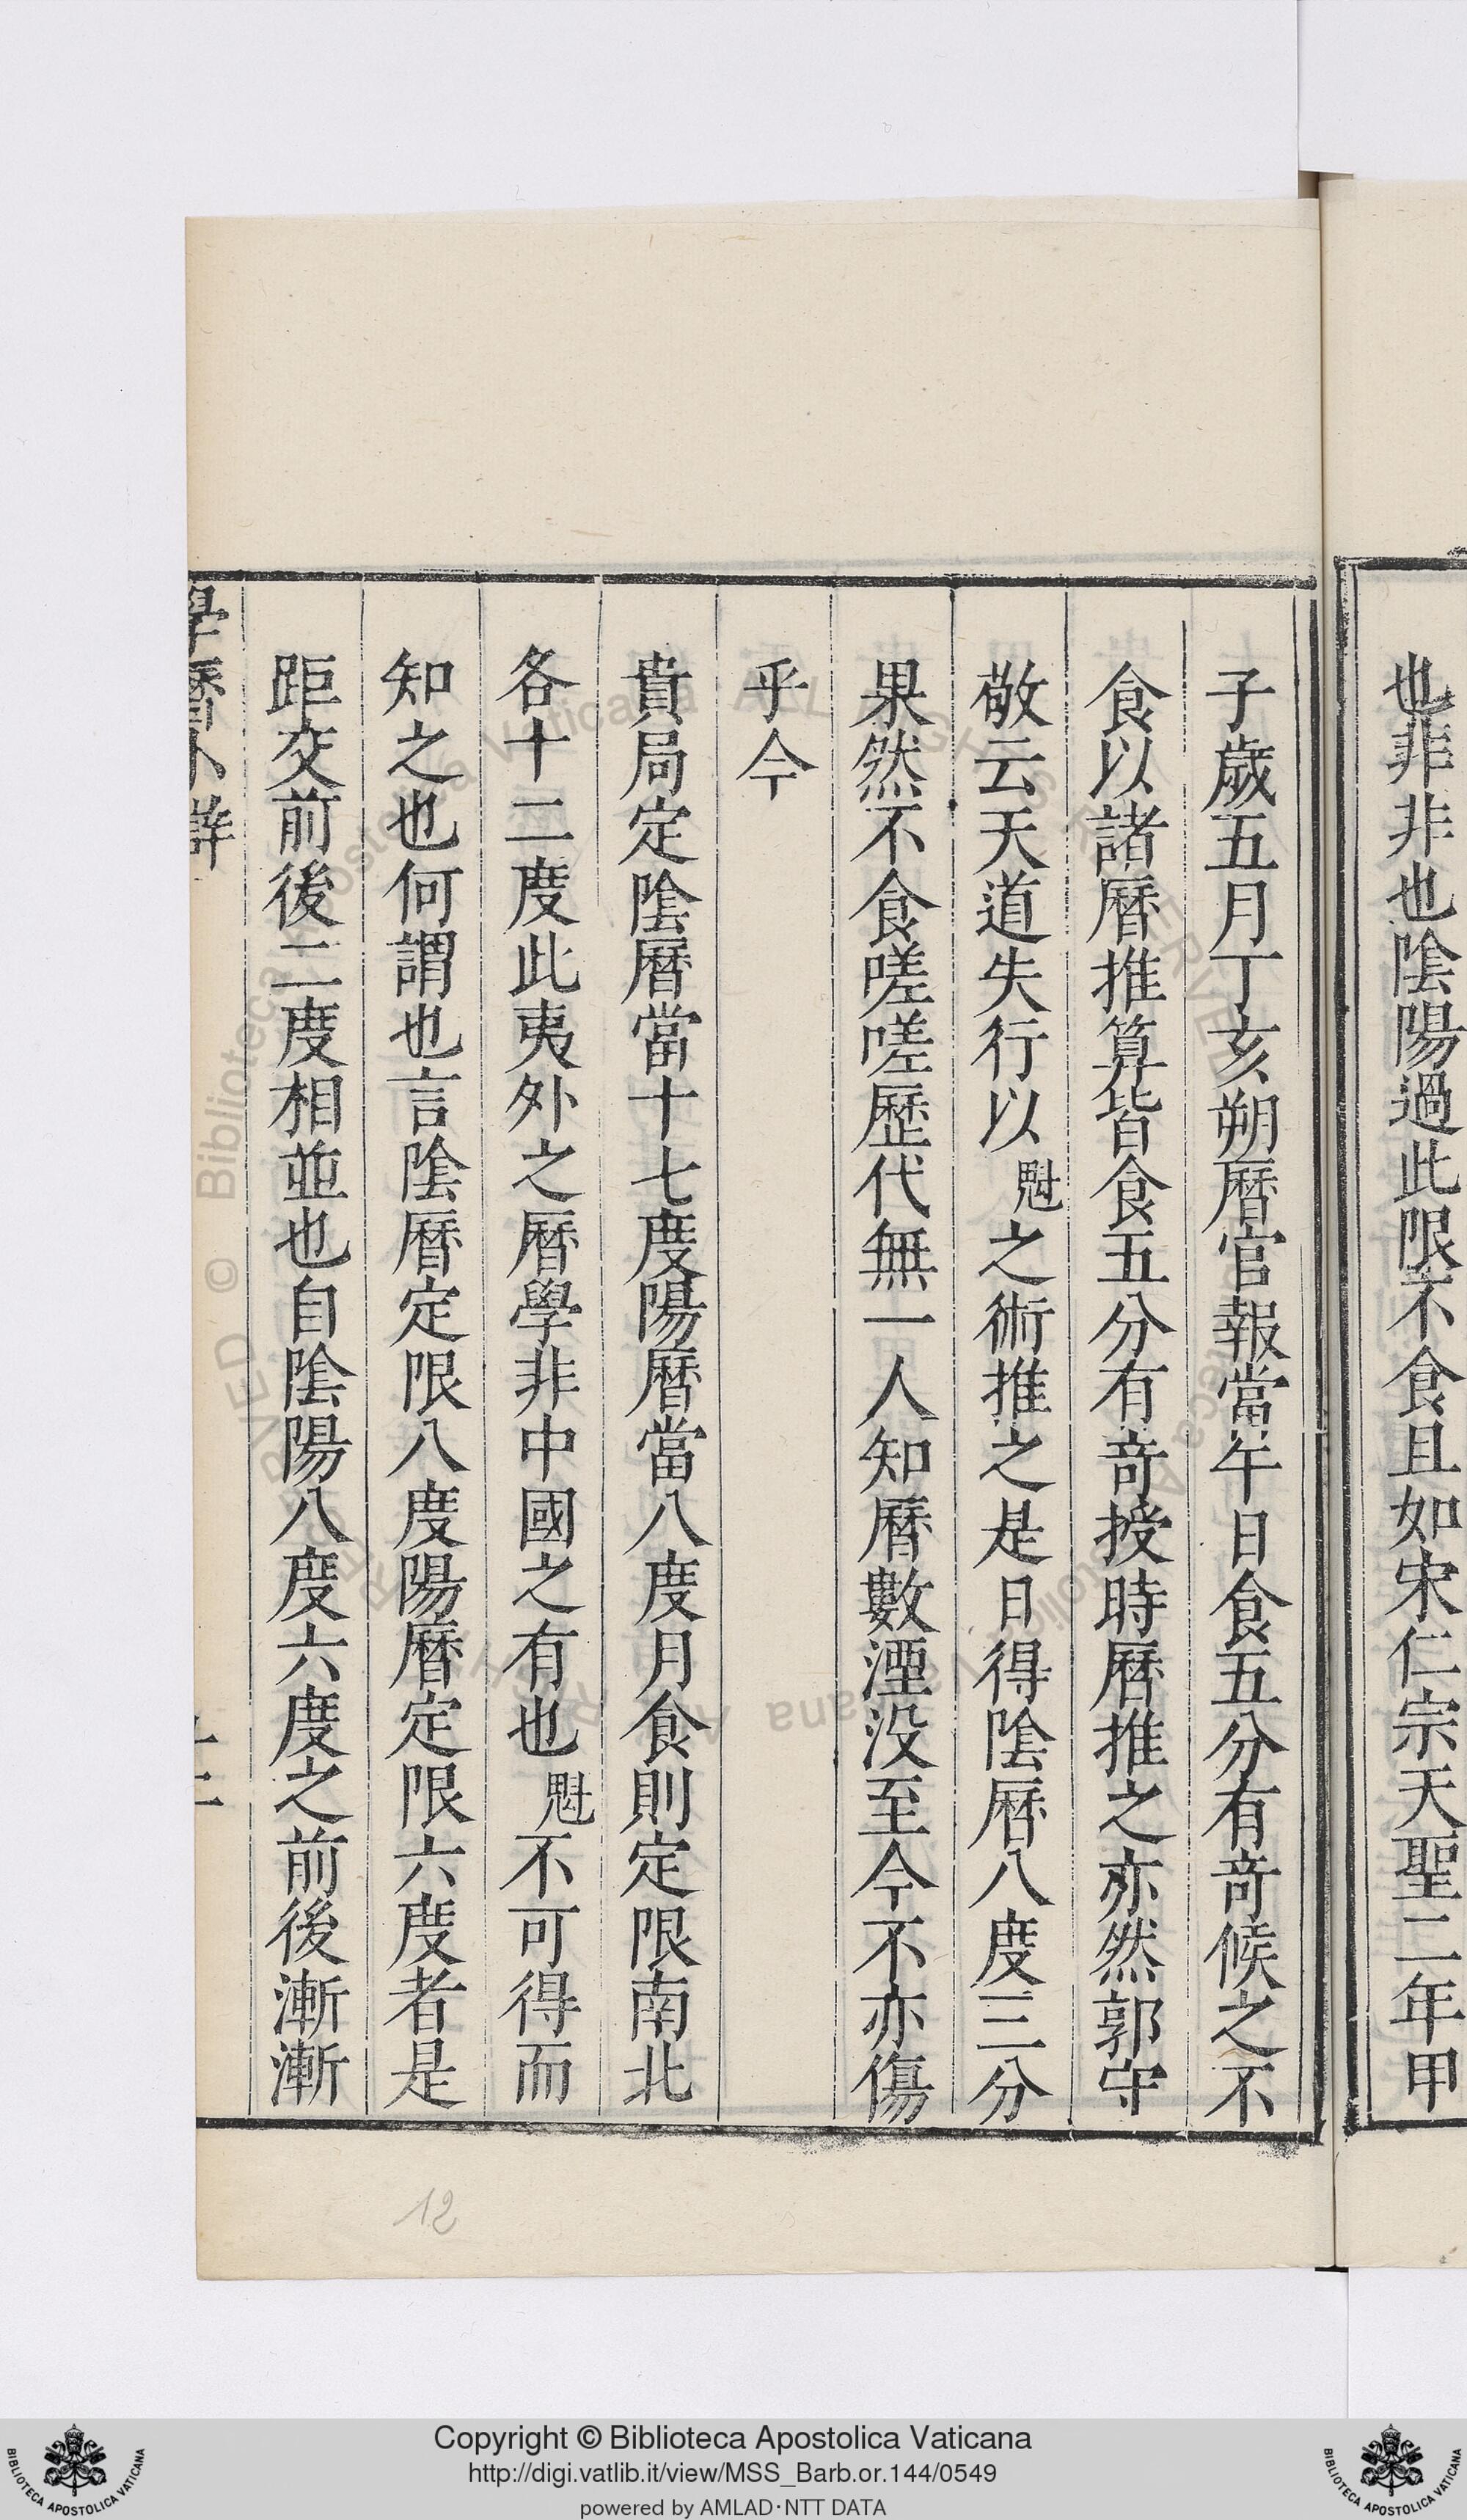 也非非也陰陽過此限不食且如宋仁宗天聖二年甲
子歲五月丁亥朔曆官報當午日食五分有竒候之不
食以諸曆推算皆食五分有竒授時曆推之亦然郭守
敬云天道失行以魁之術推之是日得陰曆八度三分
果然不食嗟嗟歷代無一人知曆數湮没至今不亦傷
乎今
貴局定陰曆當十七度陽曆當八度月食則定限南北
各十二度此夷外之曆學非中國之有也魁不可得而
知之也何謂也言陰曆定限八度陽曆定限六度者是
距交前後二度相並也自陰陽八度六度之前後漸漸
學曆小辯
十二
12
Copyright © Biblioteca Apostolica Vaticana
http://digi.vatlib.it/view/MSS_Barb.or.144/0549
powered by AMLAD·NTT DATA
BIBLIOTECA APOSTOLICA VATICANA
BIBLIOTECA APOSTOLICA VATICANA